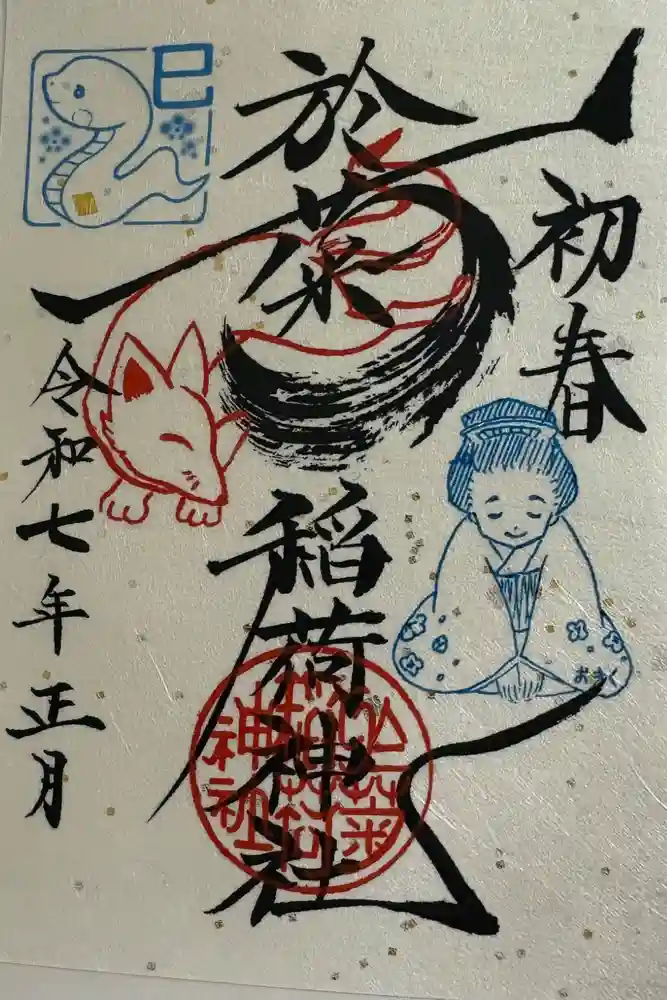 初春
於菊稲荷神社
令和七年正月
巳
おきく
於菊
稲荷
神社